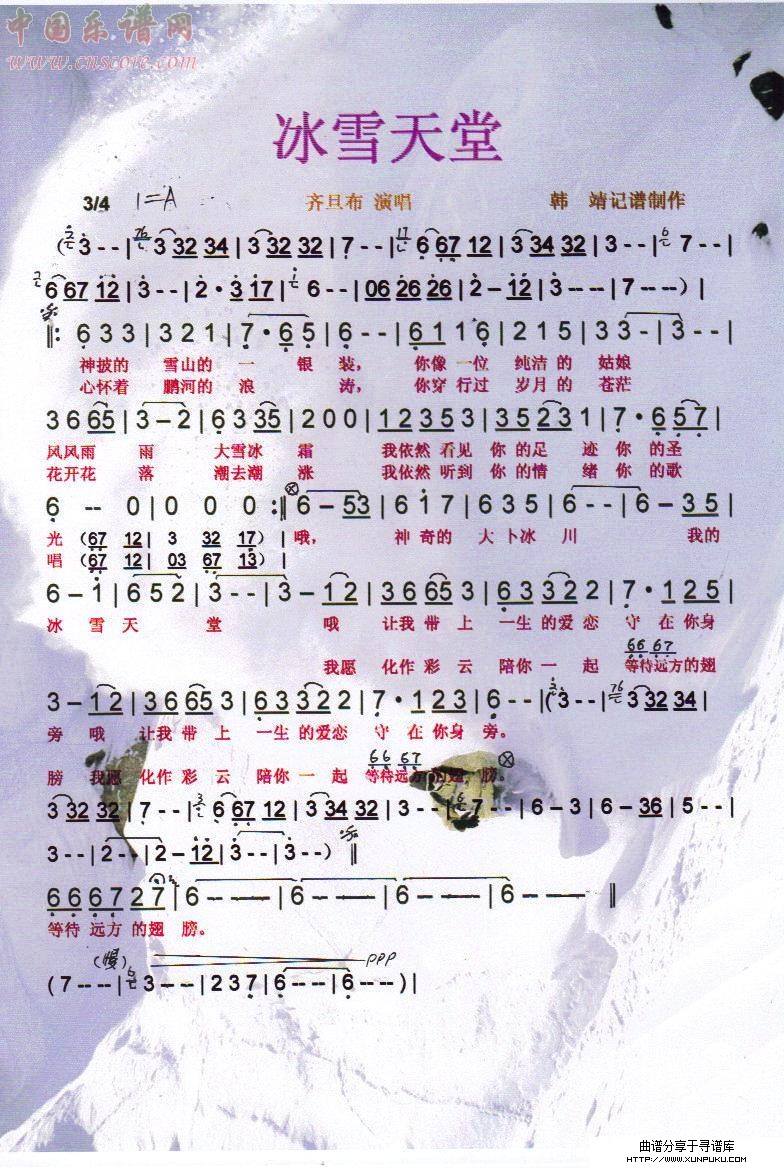 中国乐谱网
www.cnscore.com
冰雪天堂
3/4 1=A 齐旦布 演唱 韩 靖记谱制作
( 3 - - | 3 32 34 | 3 32 32 | 7 - - | 6 67 12 | 3 34 32 | 3 - - | 7 - - |
6 67 12 | 3 - - | 2 · 3 17 | 6 - - | 06 26 26 | 2 - 12 | 3 -- -- | 7 -- -- ) |
‖: 6 3 3 | 3 2 1 | 7 · 6 5 | 6 - - | 6 1 1 6 | 2 1 5 | 3 - - | 3 - - |
神披的 雪山的 一 银 装， 你像 一位 纯洁 的 姑娘
心怀着 鹏河的 浪 涛， 你穿 行过 岁月 的 苍茫
3 6 65 | 3 - 2 | 6 3 35 | 2 0 0 | 1 2 3 5 3 | 3 5 2 3 1 | 7 · 6 5 7 |
风风雨 雨 大雪冰 霜 我依然 看见 你的足 迹 你 的圣
花开花 落 潮去潮 涨 我依然 听到 你的情 绪 你 的歌
6 -- 0 | 0 0 0 :‖ 6 - 53 | 6 1 7 | 6 3 5 | 6 - - | 6 - 3 5 |
光 ( 67 12 | 3 32 17 ) | 哦， 神 奇的 大 卜冰 川 我的
唱 ( 67 12 | 03 67 13 ) |
6 - 1 | 6 5 2 | 3 - - | 3 - 1 2 | 3 6 65 3 | 6 3 3 2 2 | 7 · 1 2 5 |
冰 雪 天 堂 哦 让我 带 上 一生 的爱恋 守 在 你身
66 67
我愿 化作 彩 云 陪你 一 起 等待远方的翅
3 - 1 2 | 3 6 65 3 | 6 3 3 2 2 | 7 · 1 2 3 | 6 - - | ( 3 - - | 3 32 34 |
旁 哦 让我 带 上 一生 的爱恋 守 在 你身 旁。
66 67
膀 我愿 化作 彩 云 陪你 一 起 等待远方的翅 膀。
3 32 32 | 7 - - | 6 67 12 | 3 34 32 | 3 - - | 7 - - | 6 - 3 | 6 - 36 | 5 - - |
3 - - | 2 - - | 2 - 12 | 3 - - | 3 - - ) ‖
6 6 6 7 2 7 | 6 - -- -- | 6 - -- -- | 6 - -- -- | 6 - -- -- ‖
等待 远方 的翅 膀。
(慢) ppp
( 7 -- -- | 3 - - | 2 3 7 | 6 -- -- | 6 -- -- ) |
曲谱分享于寻谱库
HTTP://WWW.XUNPUKU.COM